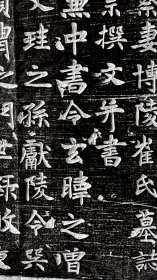 妻博陵崔氏墓誌
撰文并書
中書令玄暐之曾
之孫獻陵令
之門世祿